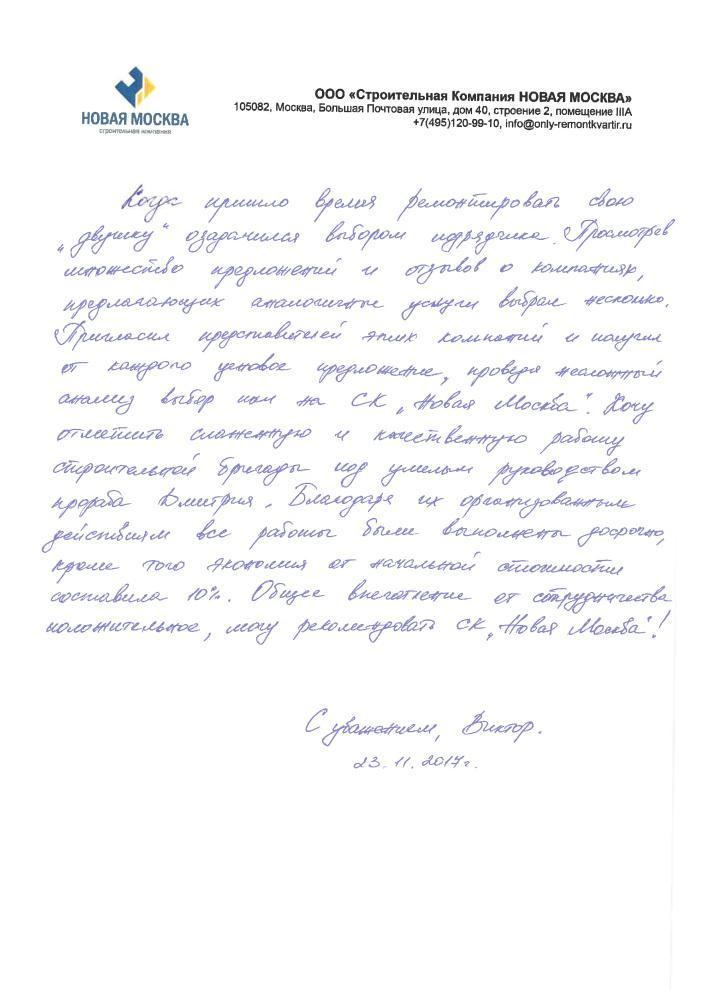 НОВАЯ МОСКВА
строительная компания
ООО «Строительная Компания НОВАЯ МОСКВА»
105082, Москва, Большая Почтовая улица, дом 40, строение 2, помещение IIIА
+7(495)120-99-10, info@only-remontkvartir.ru
Когда пришло время ремонтировать свою
„двушку“ озадачился выбором подрядчика. Просмотрев
множество предложений и отзывов о компаниях,
предлагающих аналогичные услуги выбрал несколько.
Пригласил представителей этих компаний и получил
от каждого ценовое предложение, проведя несложный
анализ выбор пал на СК „Новая Москва“. Хочу
отметить слаженную и качественную работу
строительной бригады под умелым руководством
прораба Дмитрия. Благодаря их организованным
действиям все работы были выполнены досрочно,
кроме того экономия от начальной стоимости
составила 10%. Общее впечатление от сотрудничества
положительное, могу рекомендовать СК „Новая Москва“!
С уважением, Виктор.
23.11.2017г.